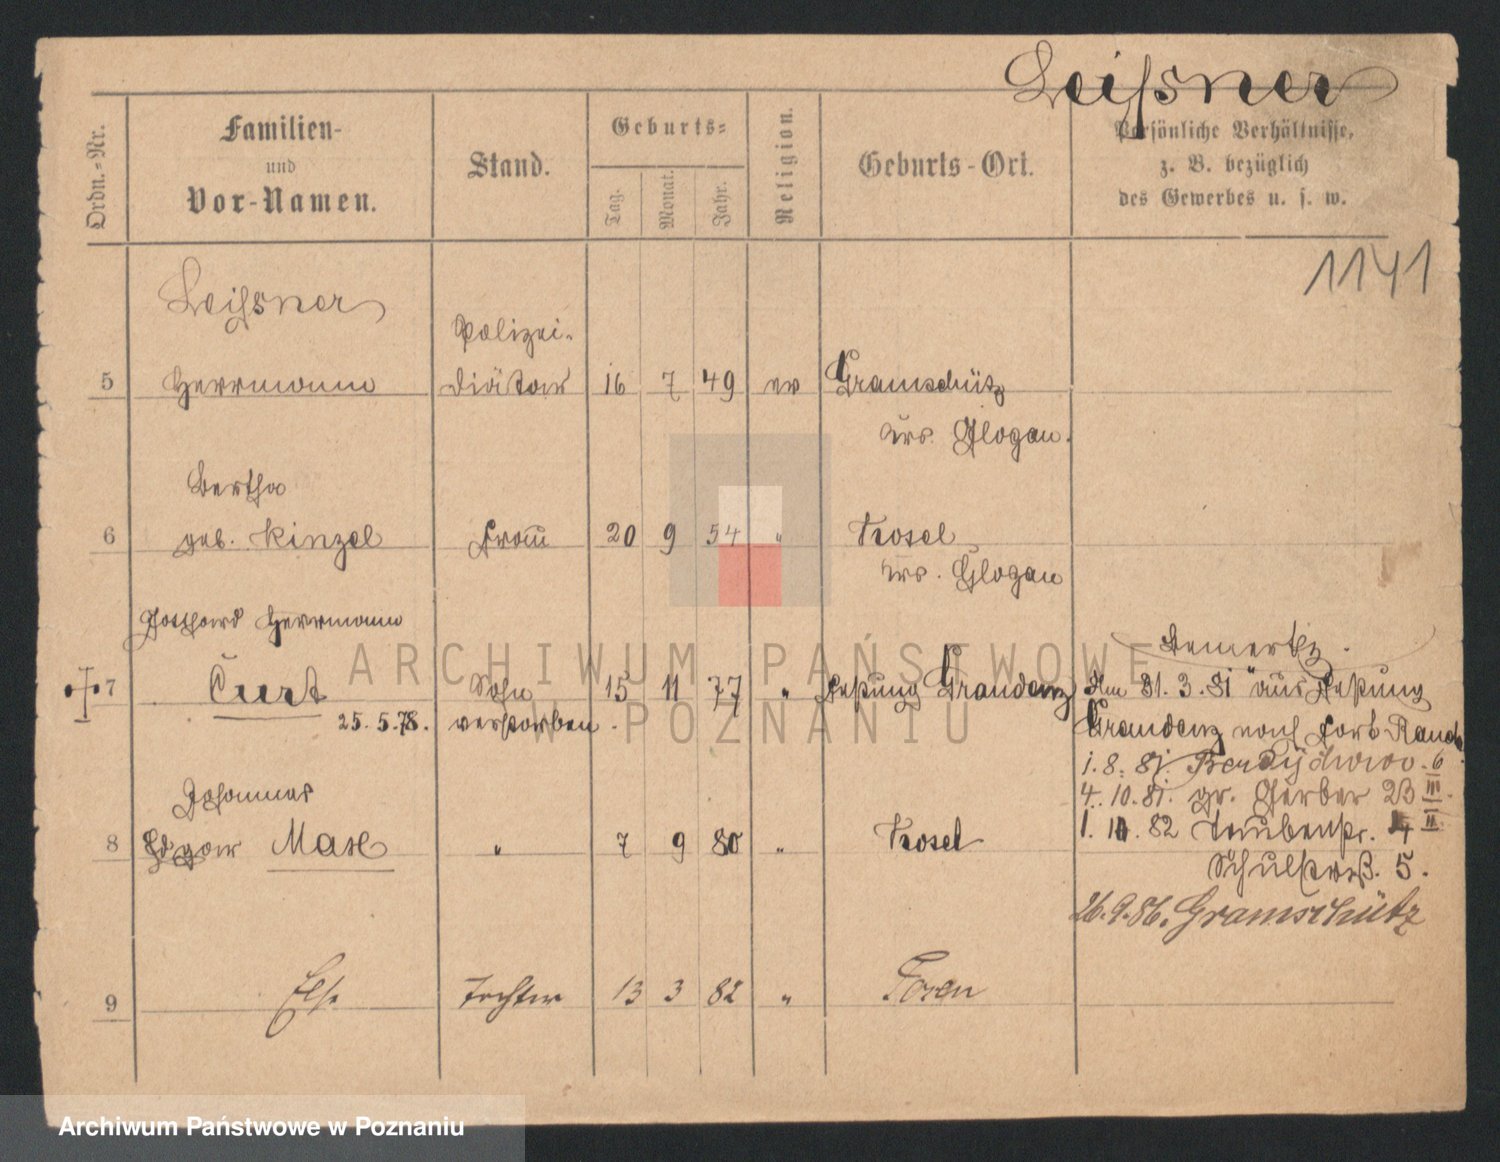 Leißner
Ordn.-Nr.
Familien-
und
Vor-Namen.
Stand.
Geburts-
Tag.
Monat.
Jahr.
Religion.
Geburts-Ort.
Persönliche Verhältnisse,
z. B. bezüglich
des Gewerbes u. s. w.
1141
Leißner
Polizei-
5 Herrmann Diätar 16 7 49 ev Gramschütz
Krs. Glogau.
Bertha
6 geb. Kinzel Frau 20 9 54 " Kosel
Krs. Glogau
Gotthard Herrmann
7 Curt Sohn 15 11 77 " Festung Graudenz
25.5.78. verstorben.
Am 31.3.81 aus Festung
Graudenz nach Fort Rauch
1.8.81. Berdychowo. 6
4.10.81. gr. Gerber 23 III.
1.10.82 Taubenstr. 4 II.
Schulstraß. 5.
26.9.86. Gramschütz
Johannes
8 Edgar Max " 7 9 80 " Kosel
9 Else Tochter 13 3 82 " Posen
ARCHIWUM PAŃSTWOWE
W POZNANIU
Archiwum Państwowe w Poznaniu